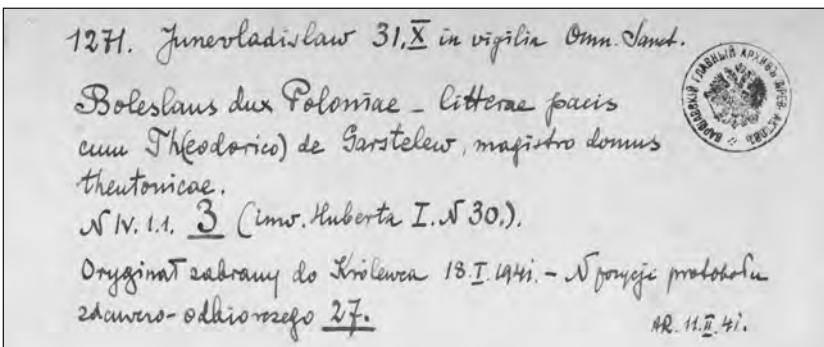 1271. Junevladislaw 31.X in vigilia Omn. Sanct.
Boleslaus dux Poloniae – litterae pacis
cum Th(eodorico) de Garstelew, magistro domus
theutonicae.
N IV. 1.1. 3 (inw. Huberta I. N 30.).
Oryginał zabrany do Królewca 18.I.1941. – N pozycji protokołu
zdawczo-odbiorczego 27.
AR. 11.II.41.
ВАРШАВСКІЙ ГЛАВНЫЙ АРХИВЪ ДРЕВ. АКТОВЪ